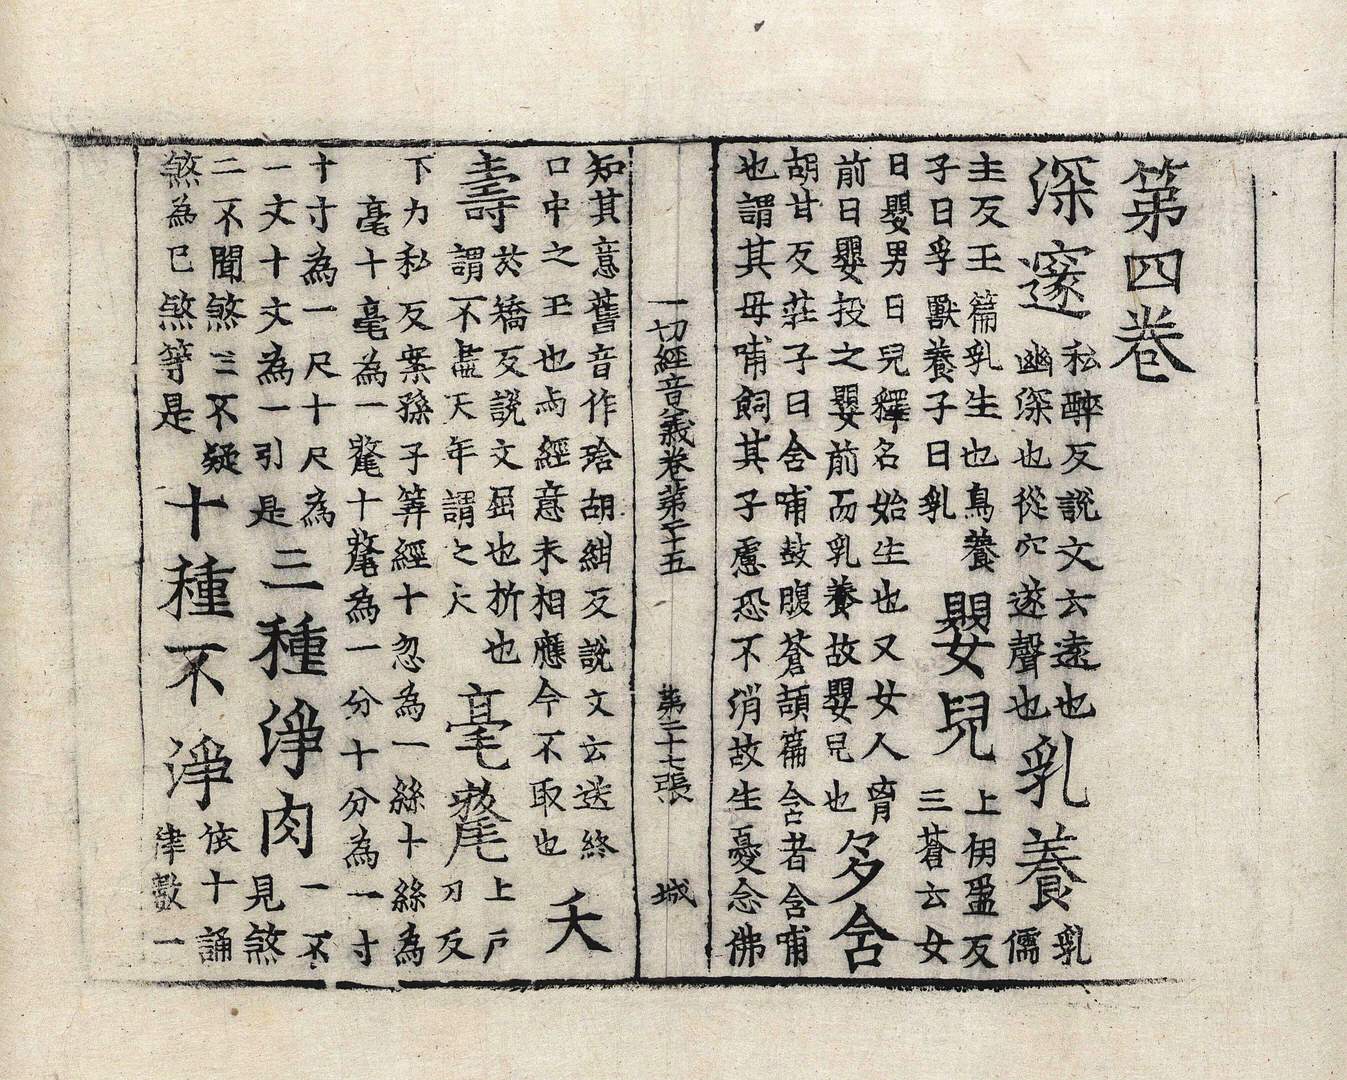 第四卷
深邃私醉反說文云遠也幽深也從穴遂聲也乳養乳儒
主反玉篇乳生也鳥養子曰孚獸養子曰乳嬰兒上伊盈反三蒼云女
曰嬰男曰兒釋名始生也又女人胷前曰嬰投之嬰前而乳養故嬰兒也多含
胡甘反莊子曰含哺鼓腹蒼頡篇含者含哺也謂其母哺飼其子慮恐不消故生憂念佛
一切經音義卷第二十五 第二十七張 城
知其意舊音作琀胡紺反說文云送終口中之玉也与經意未相應今不取也夭
壽於矯反說文屈也折也謂不盡天年謂之夭毫氂上戶刀反
下力私反案孫子筭經十忽為一絲十絲為毫十毫為一氂十氂為一分十分為一寸
十寸為一尺十尺為一丈十丈為一引是三種淨肉一不見煞
二不聞煞三不疑煞為已煞等是十種不淨依十誦律數一